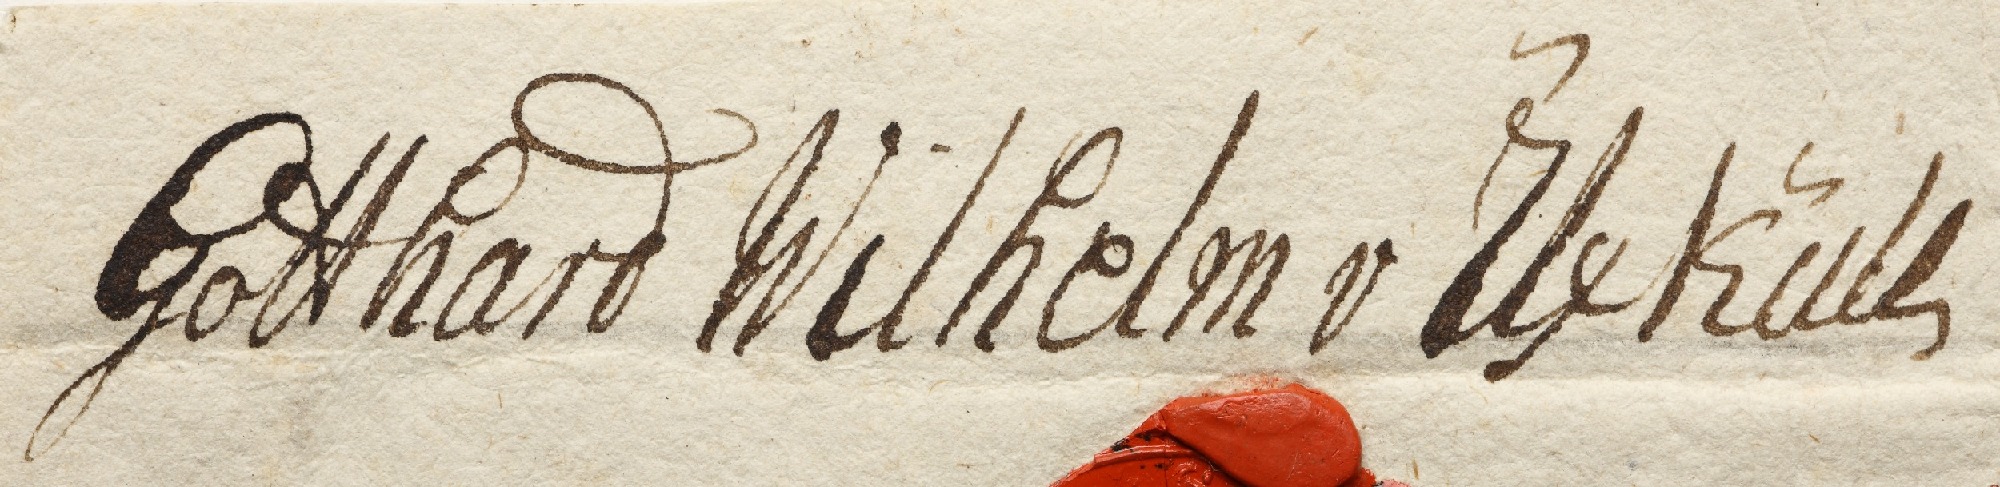 Gotthard Wilhelm v ÜxKüll